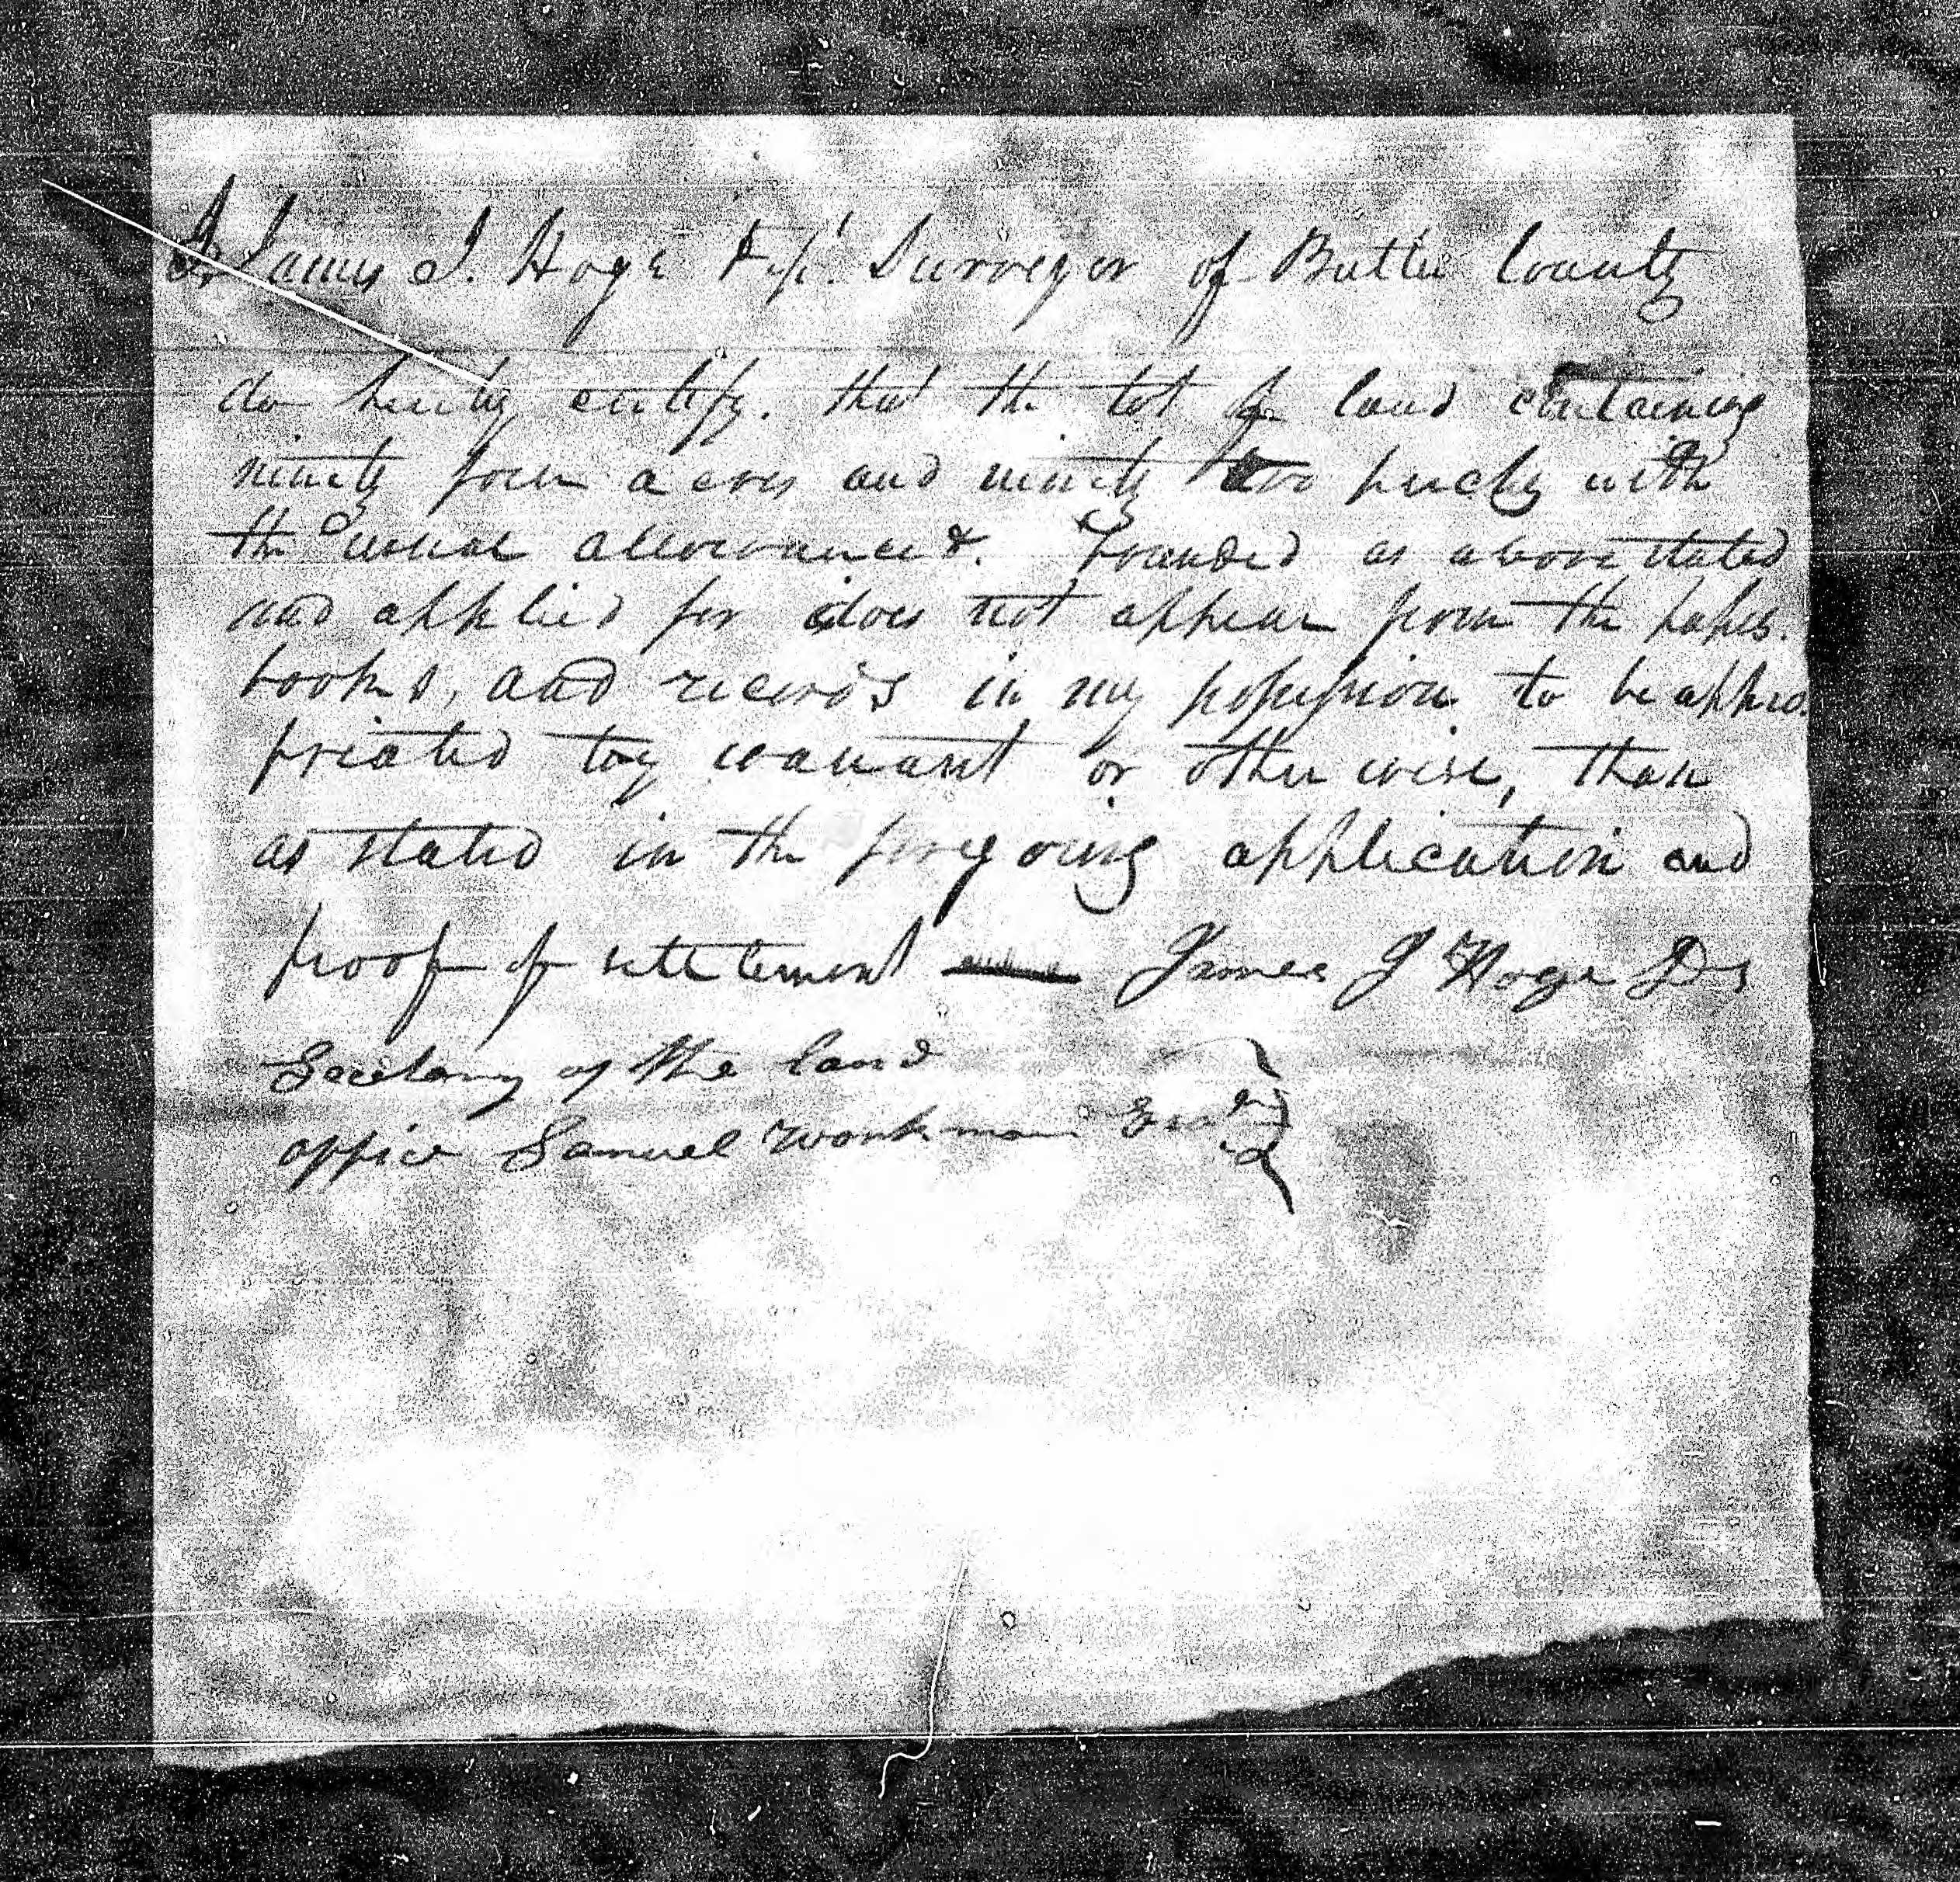 I James J. Hoge Dep. Surveyor of Butler County
do hereby certify. that the lot of land containing
ninety four acres and ninety two perches with
the usual allowance &. Founded as above stated
and applied for does not appear from the papers.
books, and records in my possession to be appro.
priated by warrant or otherwise, than
as stated in the foregoing application and
proof of settlement James J Hoge DS
Secretary of the land
office Samuel Workman Esq